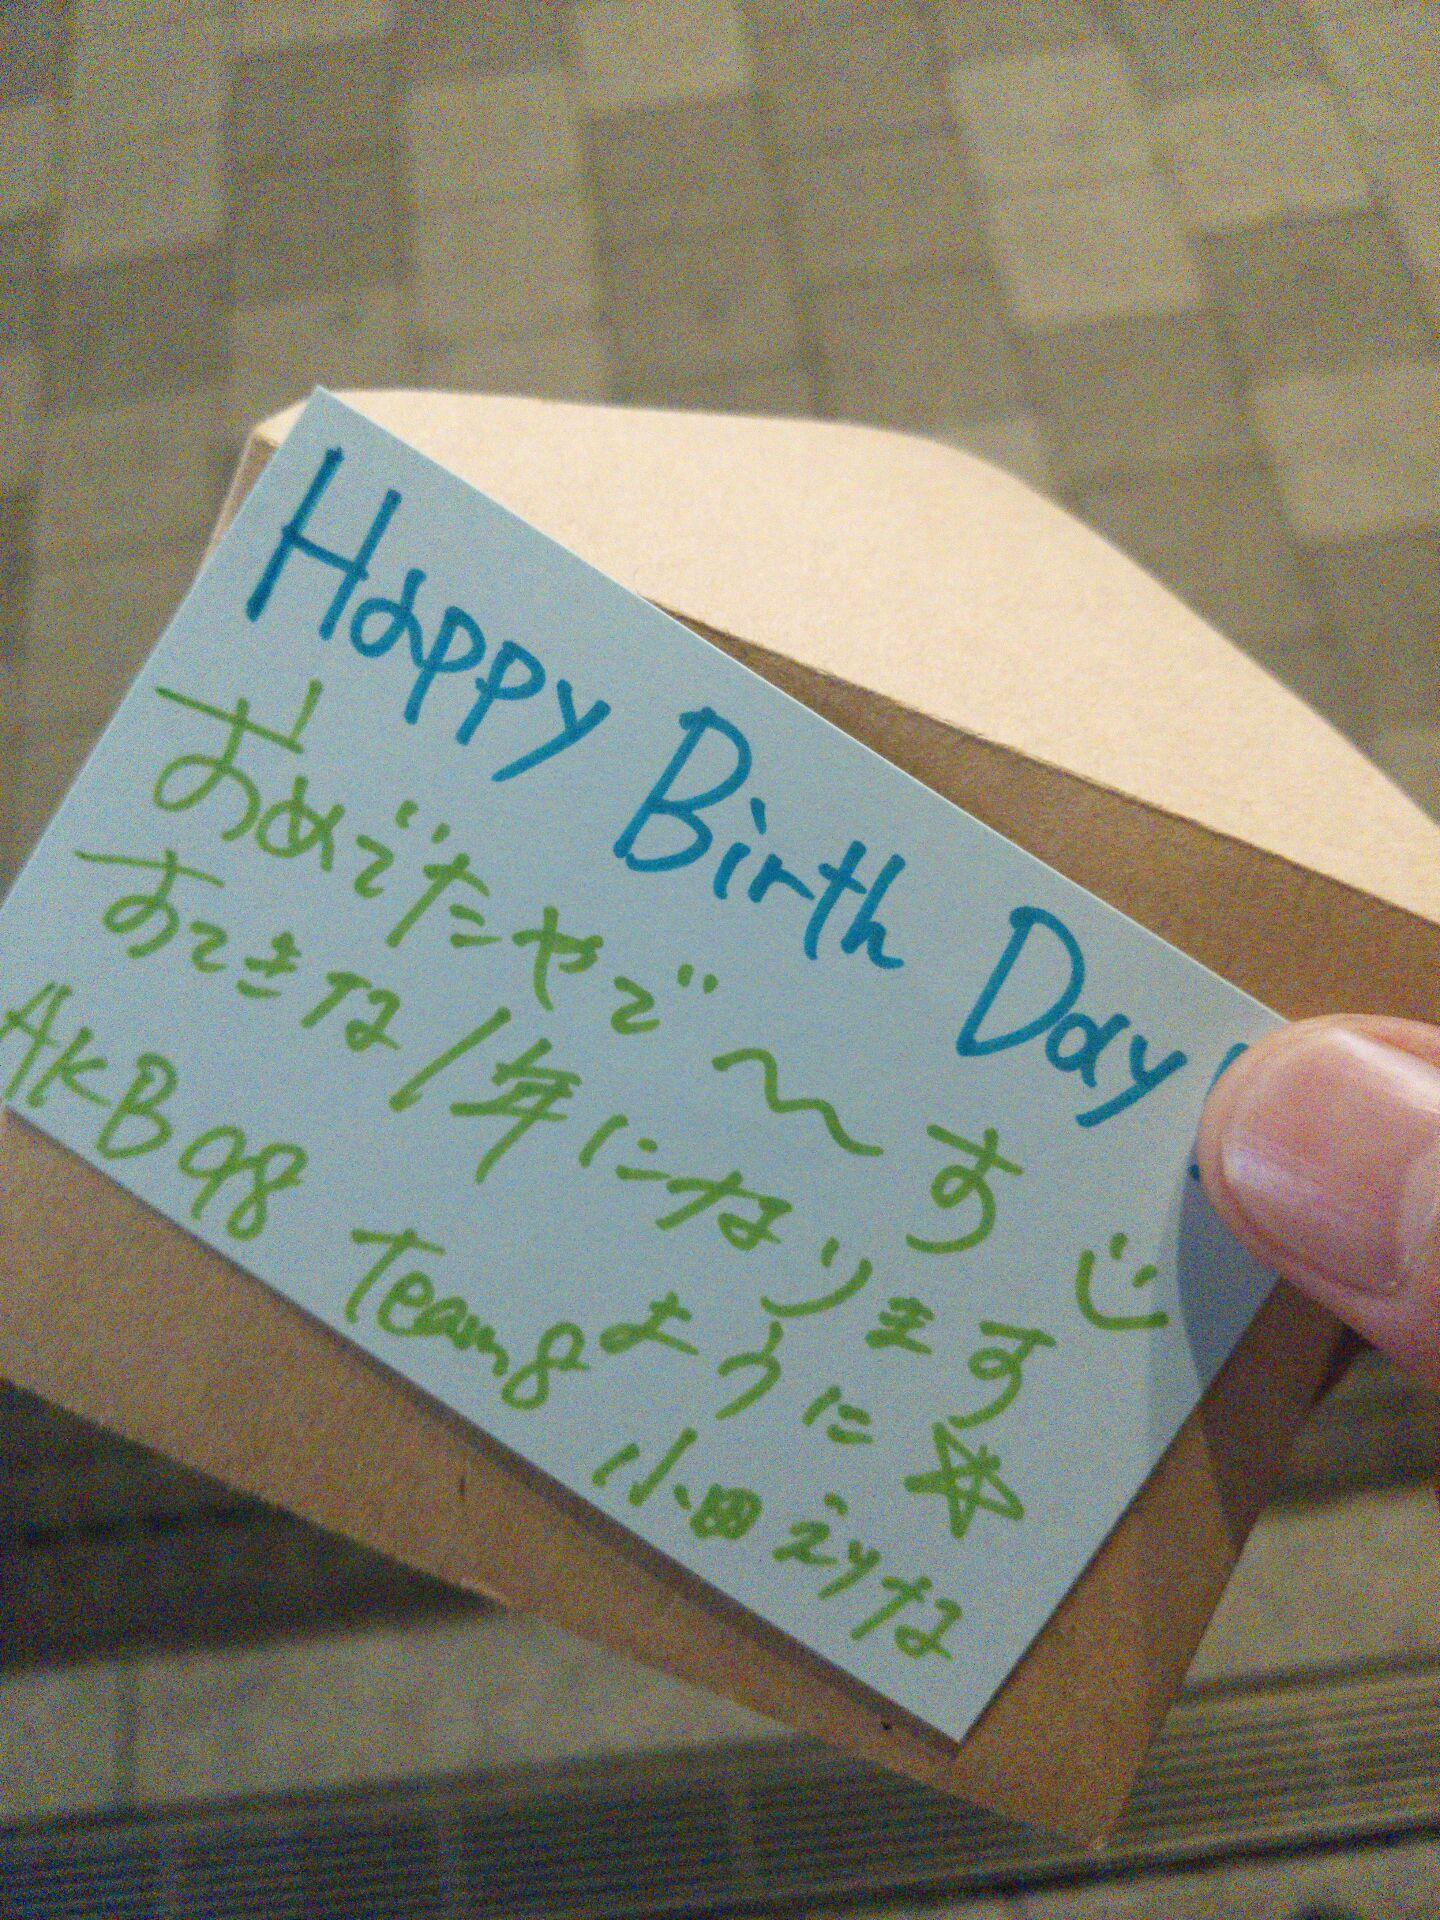 Happy Birth Day!
おめでたやで〜〜す
すてきな1年になりますように☆
AKB98 Team8 小田えりな